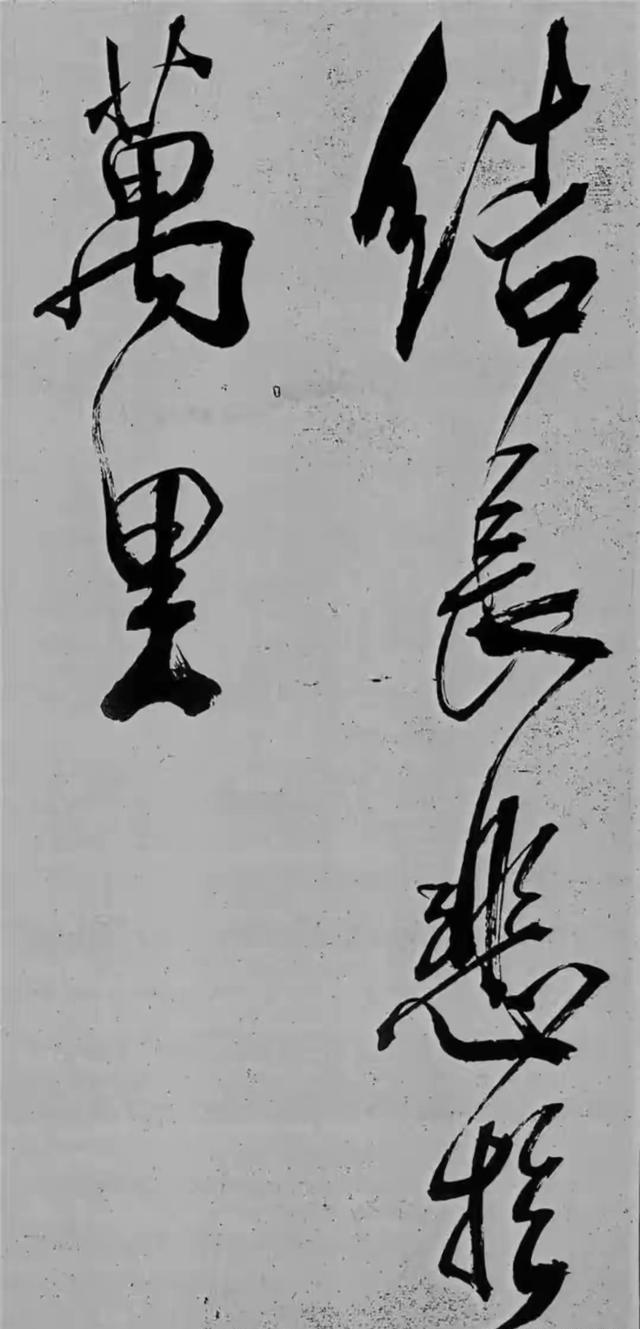 結長悲於
萬里